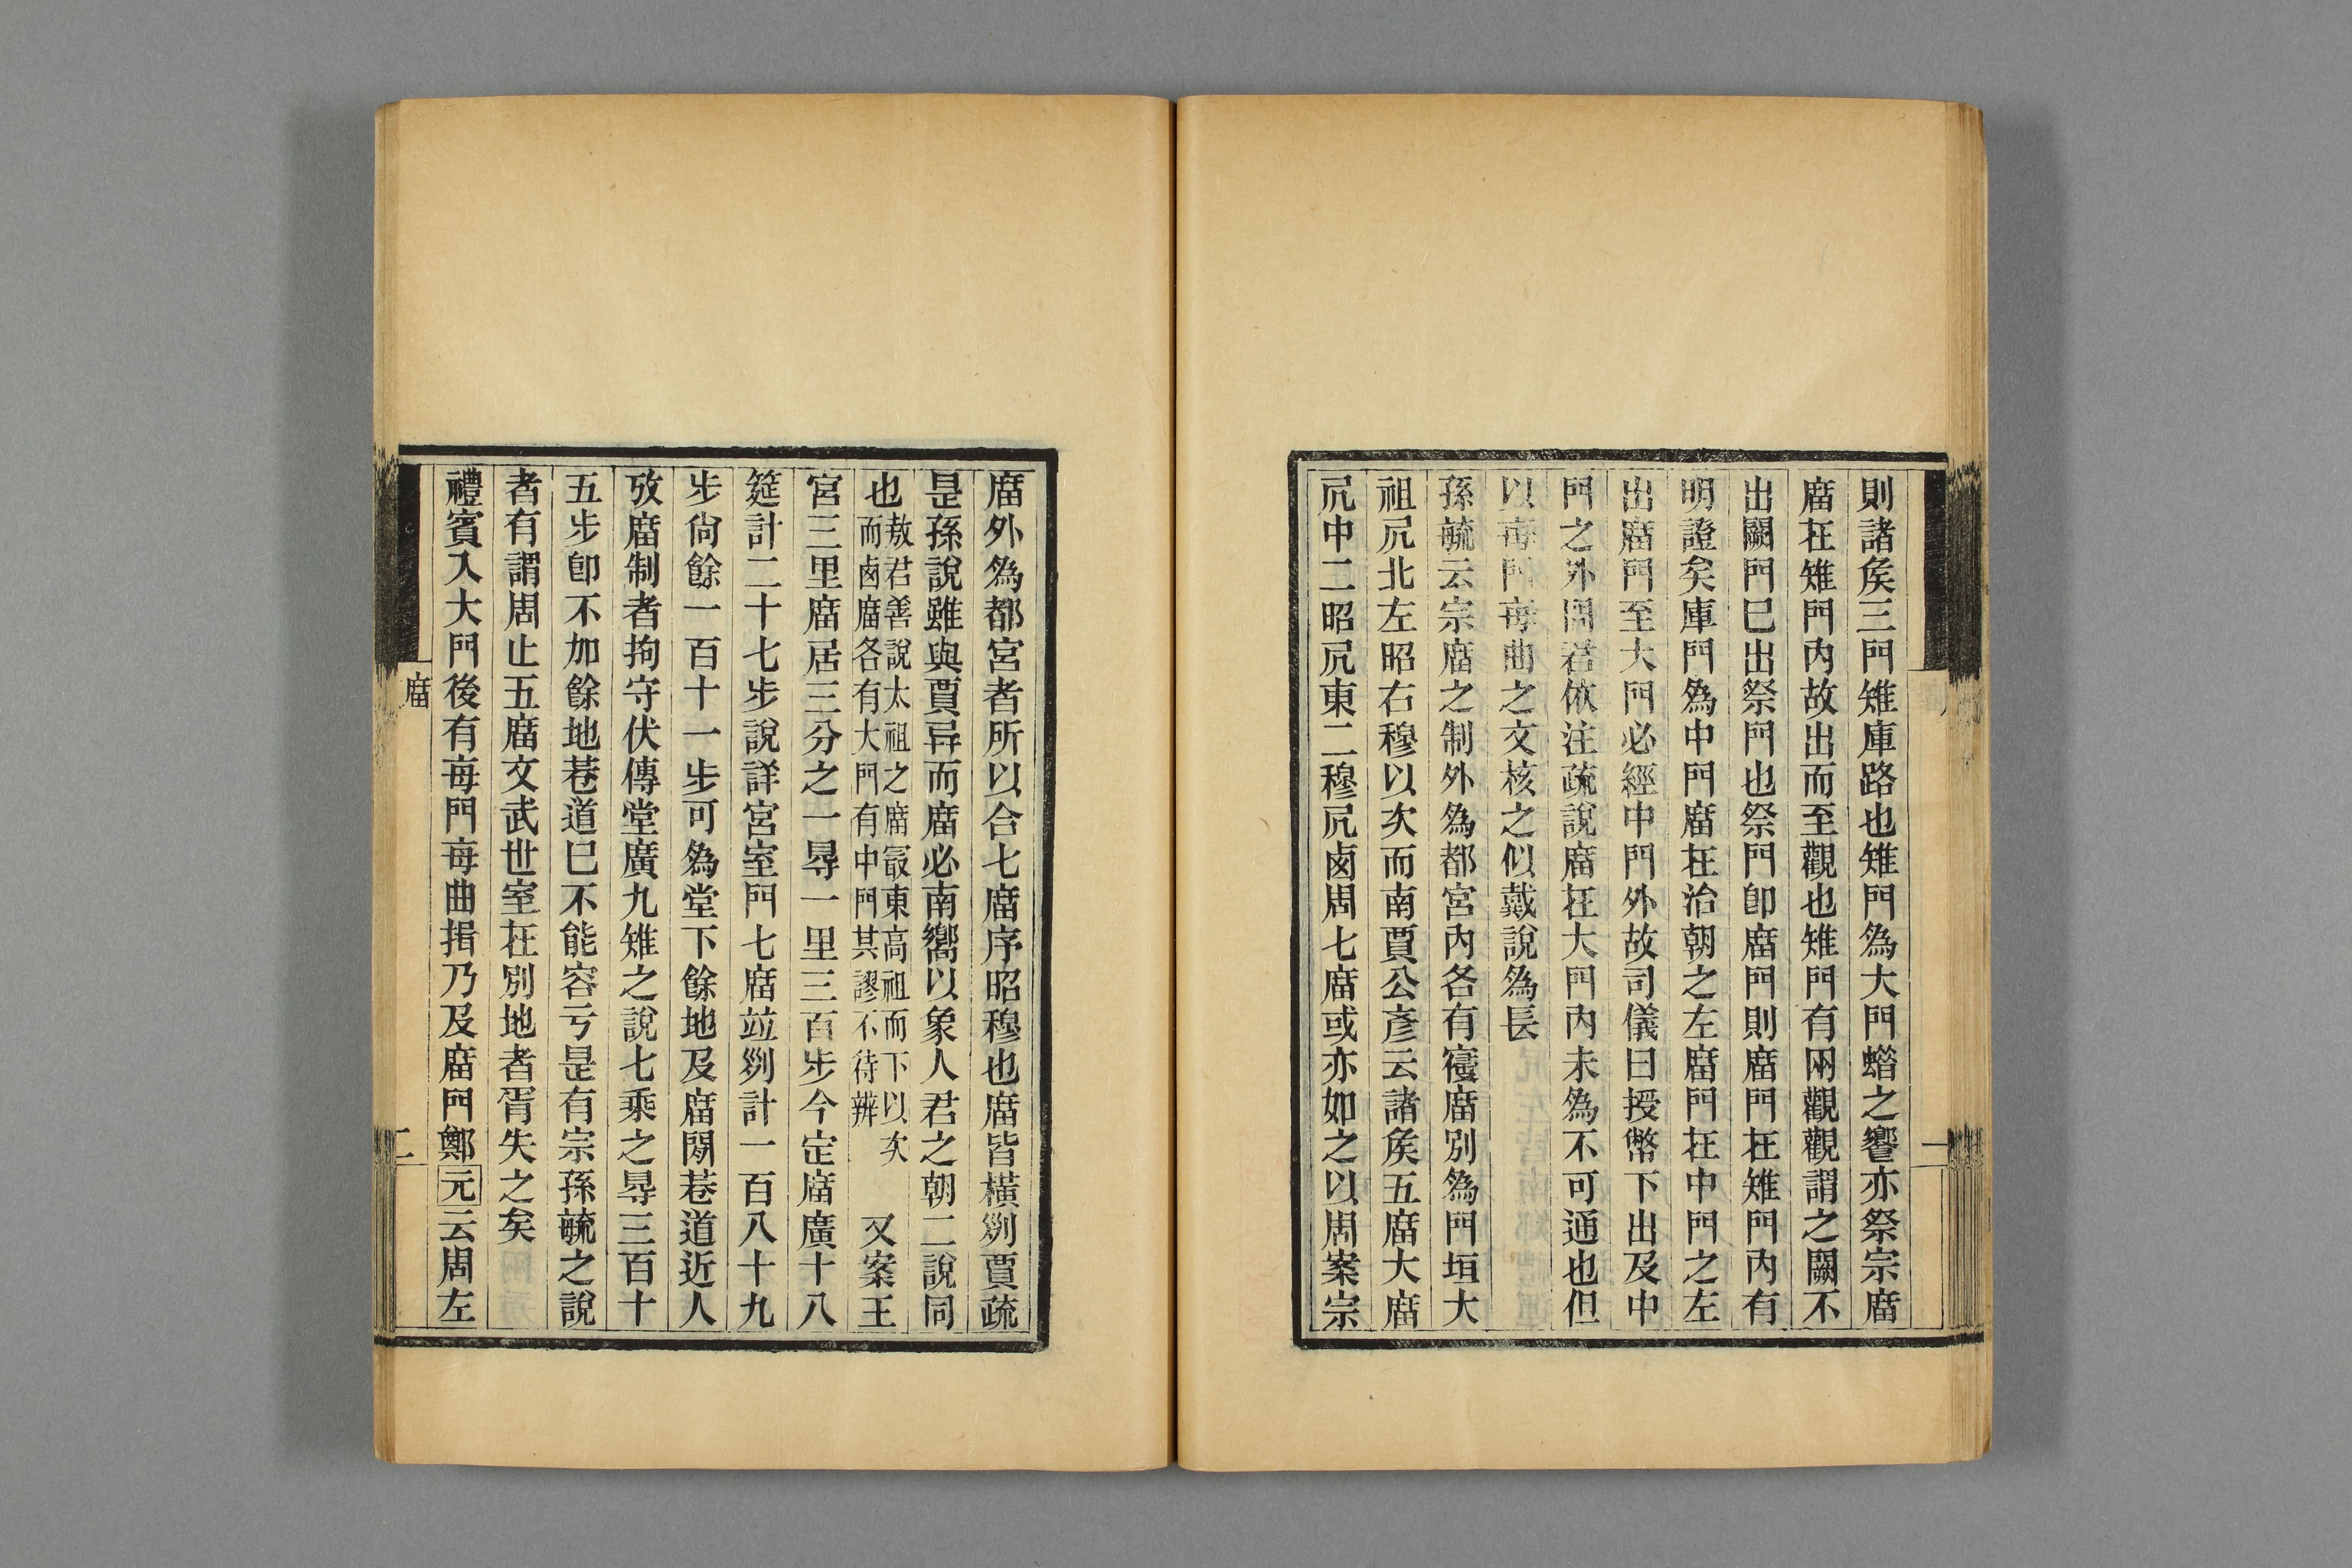 則諸矦三門雉庫路也雉門爲大門蜡之饗亦祭宗庿
庿在雉門內故出而至觀也雉門有兩觀觀謂之闕不
出闕門巳出祭門也祭門卽庿門則庿門在雉門內有
明證矣庫門爲中門庿在治朝之左庿門在中門之左
出庿門至大門必經中門外故司儀曰授幣下出及中
門之外問君依注疏說庿在大門內未爲不可通也但
以每門每曲之文核之似戴說爲長
孫毓云宗庿之制外爲都宮內各有寑庿別爲門垣大
祖凥北左昭右穆以次而南賈公彥云諸矦五庿大庿
凥中二昭凥東二穆凥鹵周七庿或亦如之以周案宗
庿外爲都宮者所以合七庿序昭穆也庿皆橫剡賈疏
昰孫說雖與賈异而庿必南嚮以象人君之朝二說同
也敖君善說太祖之庿㝡東高祖而下以次
而鹵庿各有大門有中門其謬不待辨 又案王
宮三里庿居三分之一㝵一里三百步今定庿廣十八
筵計二十七步說詳宮室門七庿竝剡計一百八十九
步尙餘一百十一步可爲堂下餘地及庿閒巷道近人
攷庿制者拘守伏傳堂廣九雉之說七乘之㝵三百十
五步卽不加餘地巷道巳不能容亏昰有宗孫毓之說
者有謂周止五庿文武世室在別地者胥失之矣
禮賓入大門後有每門每曲揖乃及庿門鄭元云周左
庿
二
一